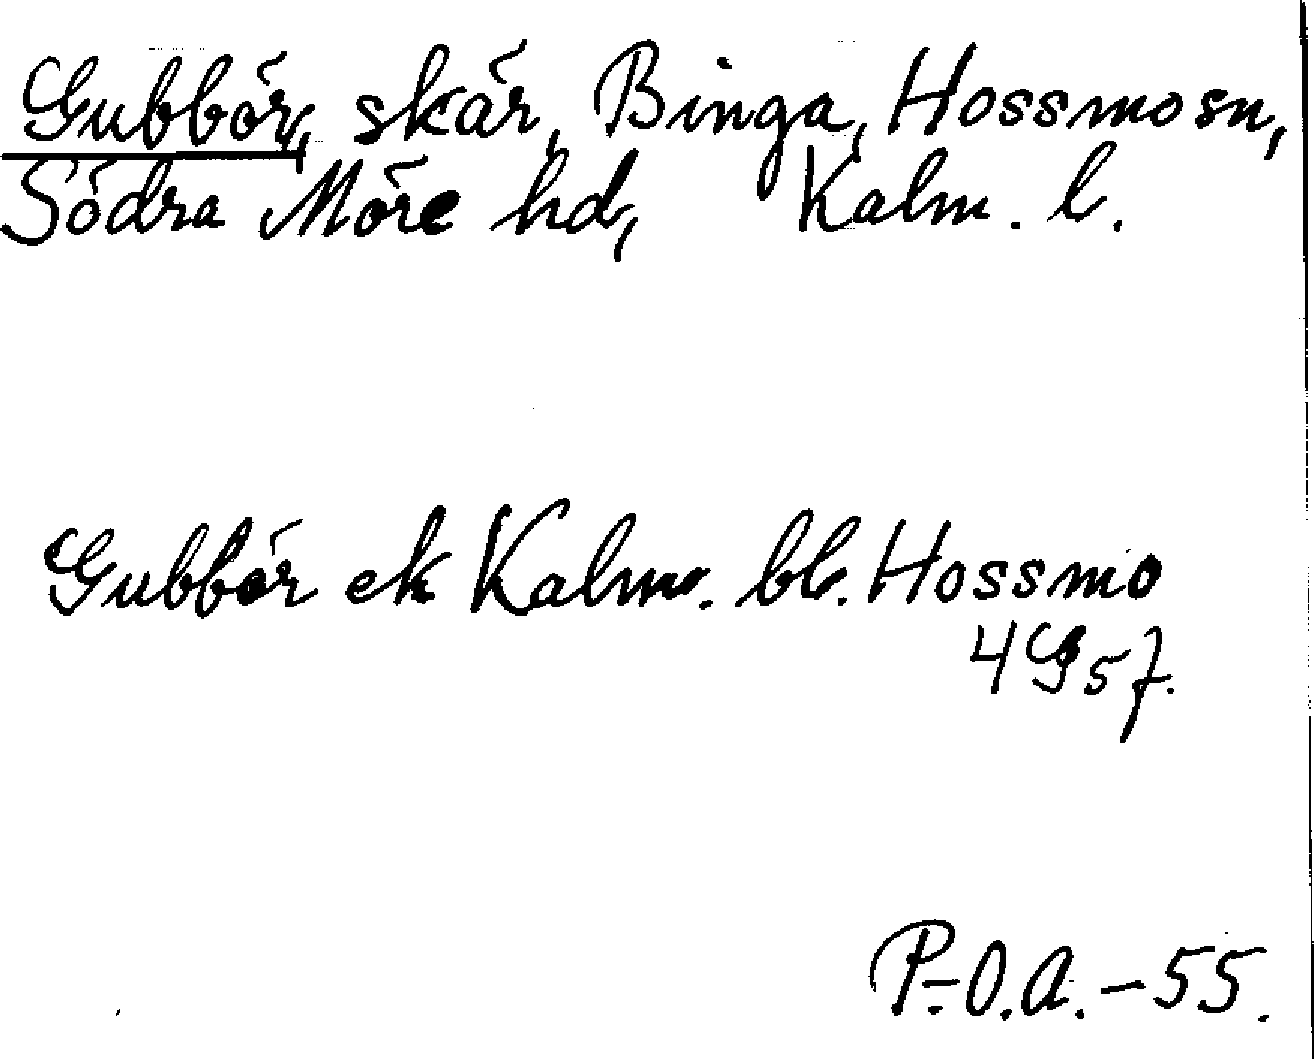 Gubbör, skär, Binga, Hossmo sn,
Södra Möre hd, Kalm. l.
Gubbör ek Kalm. bl. Hossmo
4G57.
P.-O.A.-55.